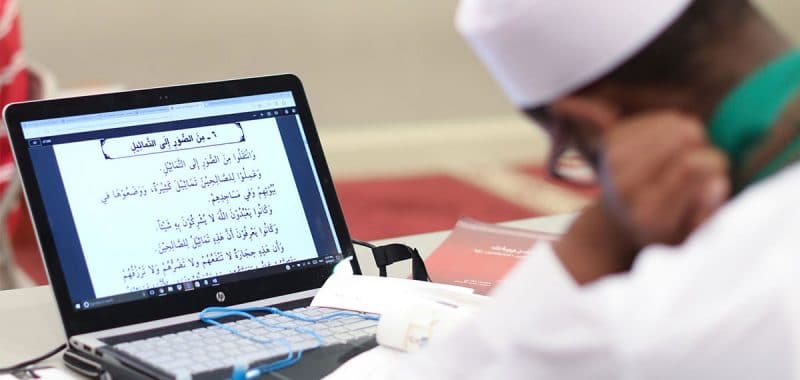 ٦ - مِنَ الصُّوَرِ إِلَى التَّمَاثِيلِ
وَانْتَقَلُوا مِنَ الصُّوَرِ إِلَى التَّمَاثِيلِ.
وَعَمِلُوا لِلصَّالِحِيْنَ تَمَاثِيْلَ كَثِيْرَةً، وَوَضَعُوهَا فِي
بُيُوتِهِمْ وَفِي مَسَاجِدِهِمْ.
وَكَانُوا يَعْبُدُوْنَ اللّٰهَ لَا يُشْرِكُوْنَ بِهِ شَيْئًا.
وَكَانُوا يَعْرِفُوْنَ أَنَّ هٰذِهِ تَمَاثِيْلُ لِلصَّالِحِيْنَ
وَأَنَّ هٰذِهِ حِجَارَةٌ لَا تَنْفَعُهُمْ وَلَا تَضُرُّهُمْ وَلَا تَرْزُقُهُمْ
hp